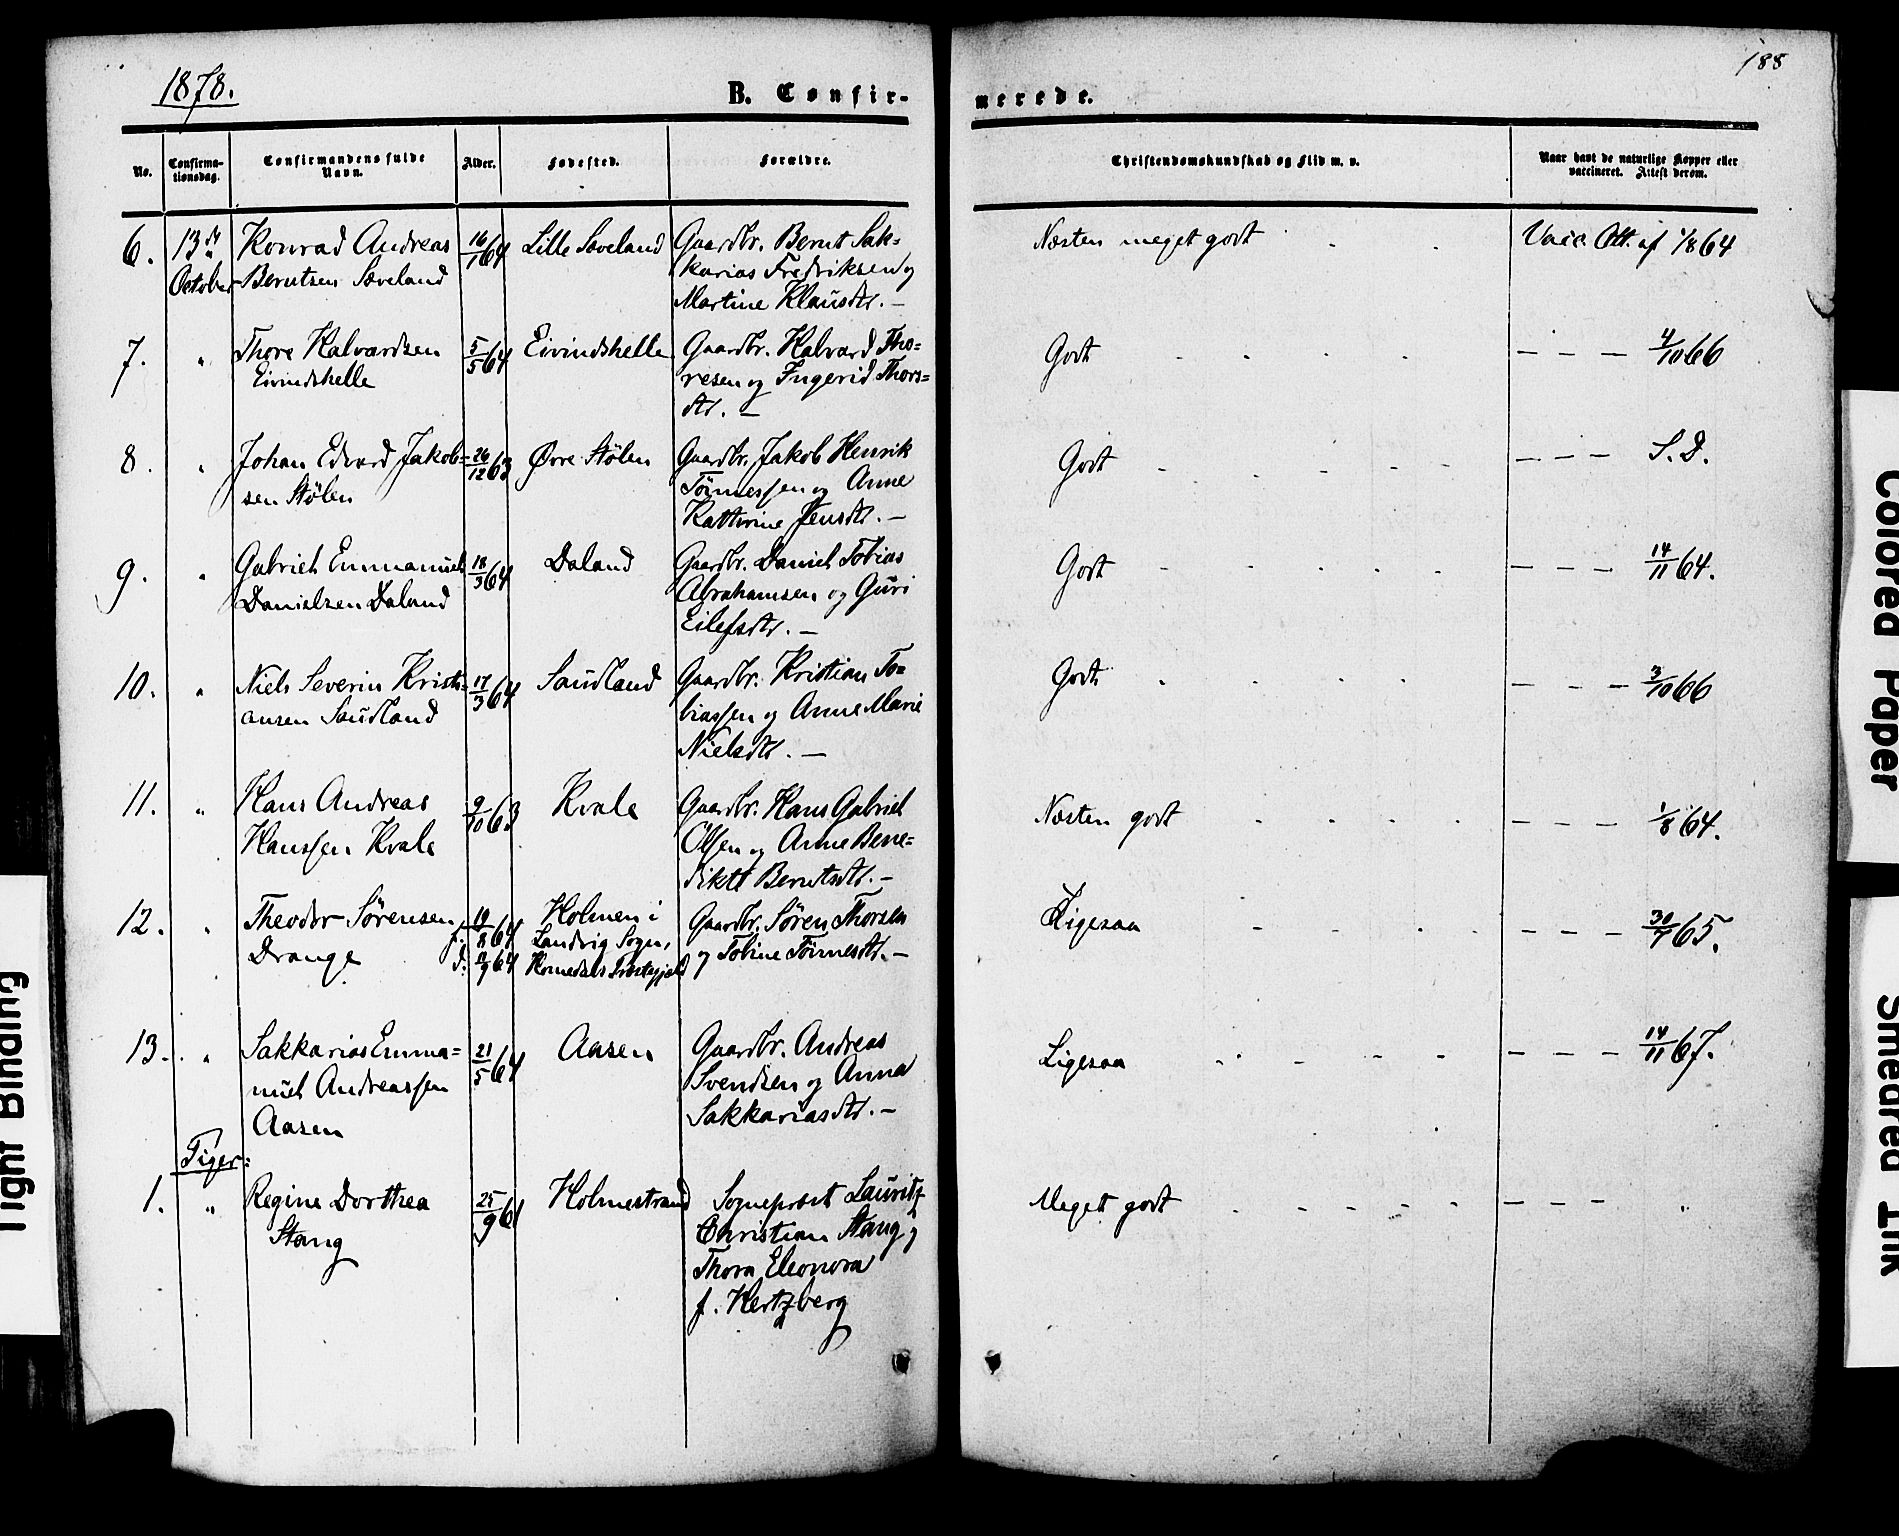 1878.
188
B. Confir-
merede.
No.
Confirma-
tionsdag.
Confirmandens fulde
Navn.
Alder.
Fødested.
Forældre.
Christendomskundskab og Flid m. v.
Naar havt de naturlige Kopper eller
vaccineret. Attest derom.
6. 13de Konrad Andreas 16/1 64 Lille Sæveland Gaardbr. Bernt Sak- Næsten meget godt Vacc. Att. af 1/8 64
October Berntsen Sæveland karias Fredriksen og
Martine Klausdtr. —
7. " Thore Halvardsen 5/5 64 Eivindshelle Gaardbr. Halvard Tho- Godt — — — 4/10 66
Eivindshelle resen og Ingerid Thors-
dtr. —
8. " Johan Edvard Jakob- 26/12 63 Øvre Stølen Gaardbr. Jakob Henrik Godt — — — S. D.
sen Stølen Tønnessen og Anne
Kathrine Jensdtr. —
9. " Gabriel Emmanuel 18/3 64 Daland Gaardbr. Daniel Tobias Godt — — — 14/11 64.
Danielsen Daland Abrahamsen og Guri
Eilefsdtr. —
10. " Niels Severin Kristi- 17/3 64 Saudland Gaardbr. Kristian To- Godt — — — 3/10 66
ansen Saudland biassen og Anne Marie
Nielsdtr. —
11. " Hans Andreas 9/10 63 Kvale Gaardbr. Hans Gabriel Næsten godt — — — 1/8 64.
Hanssen Kvale Olsen og Anne Bene-
dikte Berntsdtr. —
12. " Theodor Sørensen f. 19/8 64 Holmen i Gaardbr. Søren Thorsen Ligesaa — — — 30/7 65.
Drange d. 64 Landvig Sogn, og Tobine Tønnesdtr. —
Homedals Præstegjeld
13. " Sakkarias Emma- 21/5 64 Aasen Gaardbr. Andreas Ligesaa — — — 14/11 67.
nuel Andreassen Svendsen og Anna
Aasen Sakkariasdtr. —
Piger:
1. " Regine Dorthea 25/9 61 Holmestrand Sognepræst Lauritz Meget godt — — — "
Stang Christian Stang og
Thora Eleonora
f. Hertzberg
Tight Binding
Colored Paper
Smeared Ink